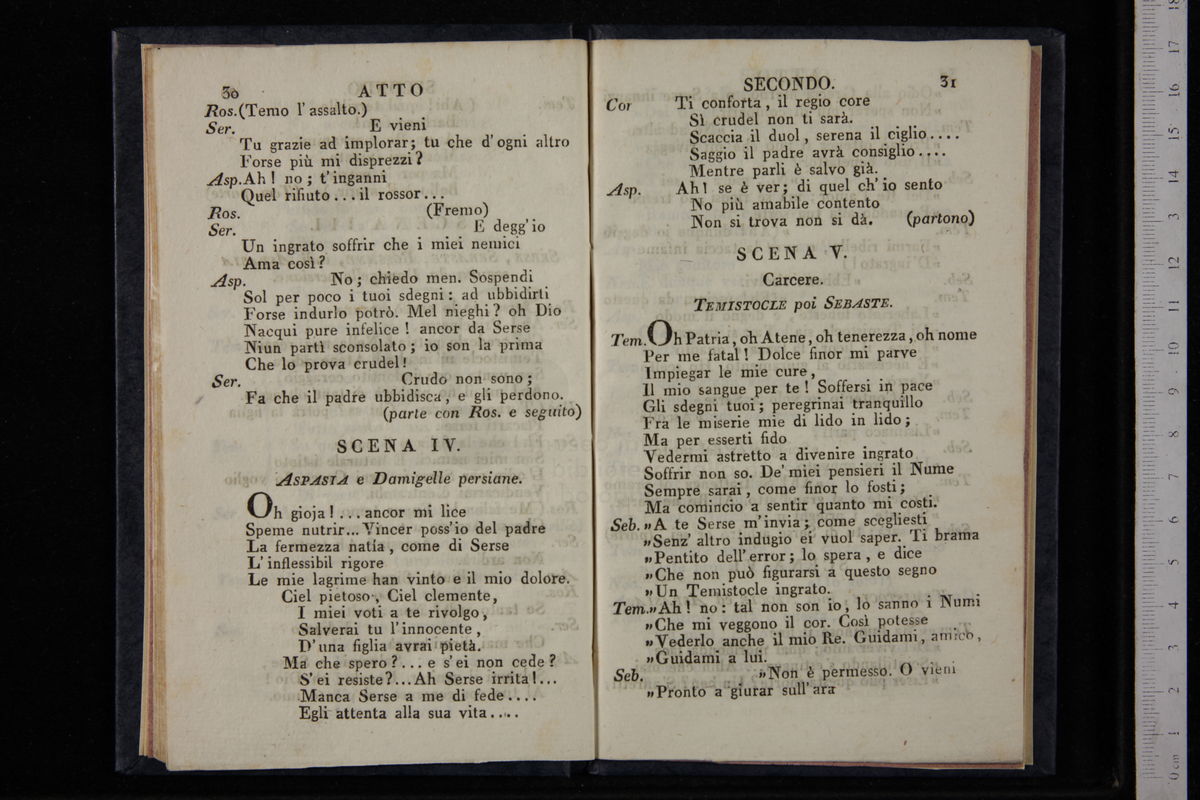 30 ATTO
Ros.(Temo l' assalto.)
Ser. E vieni
Tu grazie ad implorar; tu che d' ogni altro
Forse più mi disprezzi?
Asp.Ah! no; t' inganni
Quel rifiuto... il rossor...
Ros. (Fremo)
Ser. E degg' io
Un ingrato soffrir che i miei nemici
Ama così?
Asp. No; chiedo men. Sospendi
Sol per poco i tuoi sdegni: ad ubbidirti
Forse indurlo potrò. Mel nieghi? oh Dio
Nacqui pure infelice! ancor da Serse
Niun partì sconsolato; io son la prima
Che lo prova crudel!
Ser. Crudo non sono;
Fa che il padre ubbidisca, e gli perdono.
(parte con Ros. e seguito)
SCENA IV.
ASPASIA e Damigelle persiane.
Oh gioja!... ancor mi lice
Speme nutrir... Vincer poss' io del padre
La fermezza natía, come di Serse
L' inflessibil rigore
Le mie lagrime han vinto e il mio dolore.
Ciel pietoso, Ciel clemente,
I miei voti a te rivolgo,
Salverai tu l' innocente,
D' una figlia avrai pietà.
Ma che spero?... e s' ei non cede?
S' ei resiste?...Ah Serse irrita!...
Manca Serse a me di fede....
Egli attenta alla sua vita....
SECONDO. 31
Cor Ti conforta, il regio core
Sì crudel non ti sarà.
Scaccia il duol, serena il ciglio....
Saggio il padre avrà consiglio....
Mentre parli è salvo già.
Asp. Ah! se è ver; di quel ch' io sento
No più amabile contento
Non si trova non si dà. (partono)
SCENA V.
Carcere.
TEMISTOCLE poi SEBASTE.
Tem.Oh Patria, oh Atene, oh tenerezza, oh nome
Per me fatal! Dolce finor mi parve
Impiegar le mie cure,
Il mio sangue per te! Soffersi in pace
Gli sdegni tuoi; peregrinai tranquillo
Fra le miserie mie di lido in lido;
Ma per esserti fido
Vedermi astretto a divenire ingrato
Soffrir non so. De' miei pensieri il Nume
Sempre sarai, come finor lo fosti;
Ma comincio a sentir quanto mi costi.
Seb. »A te Serse m' invia; come scegliesti
»Senz' altro indugio ei vuol saper. Ti brama
»Pentito dell' error; lo spera, e dice
»Che non può figurarsi a questo segno
»Un Temistocle ingrato.
Tem.»Ah! no: tal non son io, lo sanno i Numi
»Che mi veggono il cor. Così potesse
»Vederlo anche il mio Re. Guidami, amico,
»Guidami a lui.
Seb. »Non è permesso. O vieni
»Pronto a giurar sull' ara